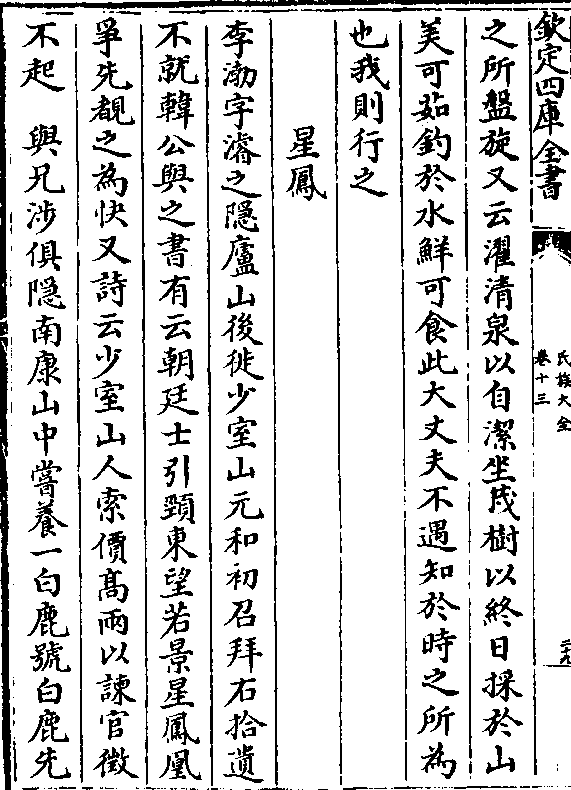 欽定四庫全書
氏族大全
卷十三
二十九
之所盤旋又云濯清泉以自潔坐茂樹以終日採於山
美可茹釣於水鮮可食此大丈夫不遇知於時之所為
也我則行之
星鳳
李渤字濬之隱廬山後徙少室山元和初召拜右拾遺
不就韓公與之書有云朝廷士引頸東望若景星鳳凰
爭先覩之為快又詩云少室山人索價髙兩以諫官徵
不起 與兄涉俱隱南康山中嘗養一白鹿號白鹿先